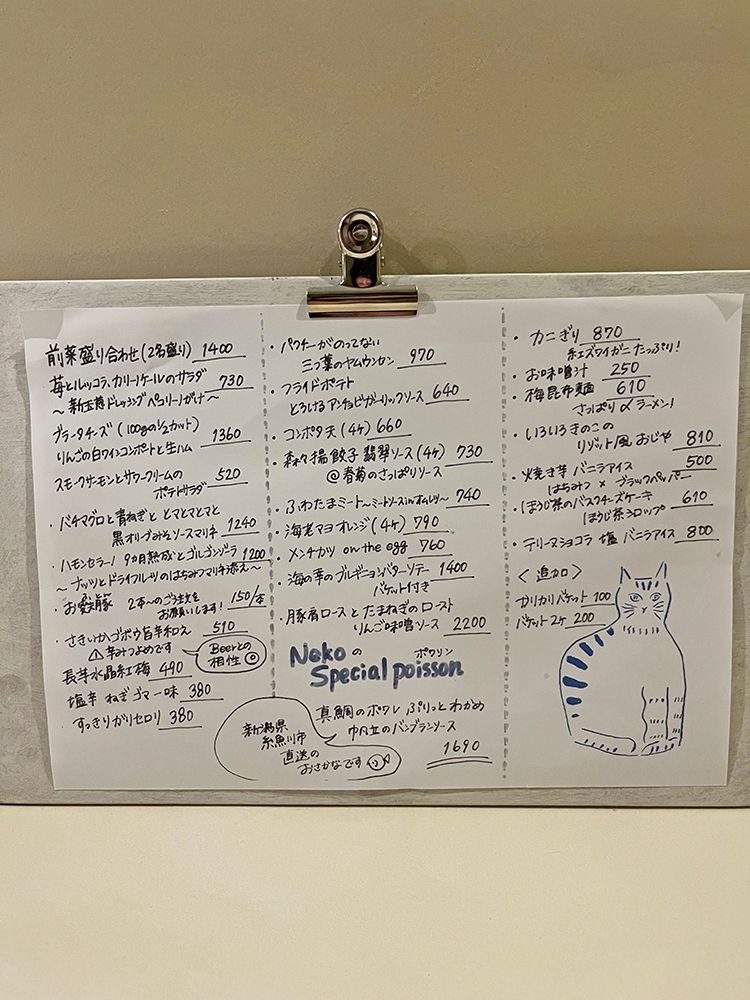 前菜盛り合わせ(2名盛り) 1400
苺とルッコラ、カリーノケールのサラダ 730
～新玉葱ドレッシング ペコリーノがけ～
ブラータチーズ(100gの1/2カット)
りんごの白ワインコンポートと生ハム 1360
スモークサーモンとサワークリームの 520
ポテトサラダ
・バチマグロと青ねぎと とマとマとマと
黒オリーブみそソースマリネ 1240
・ハモンセラーノ 9カ月熟成とゴルゴンゾーラ 1200
～ナッツとドライフルーツのはちみつマリネ添え～
・お変豚 2本〜のご注文を
お願いします! 150/本
・さきいかとゴボウ旨辛和え 510
⚠辛みつよめです
Beerとの
相性◎
長芋水晶紅梅 490
塩辛 ねぎゴマ一味 380
すっきりがりセロリ 380
・パクチーがのってない
三つ葉のヤムウンセン 970
・フライドポテト
とろけるアンチョビガーリックソース 640
・コンポタ天(4ヶ) 660
・森々揚餃子 翡翠ソース(4ヶ) 730
@春菊のさっぱりソース
・ふわたまミート〜ミートソースinオムレツ〜 740
・海老マヨ オレンジ(4ヶ) 790
・メンチカツ on the egg 760
・海の幸のブルギニョンバターソテー 1400
バケット付き
・豚肩ロースと たまねぎのロースト
りんご味噌ソース 2200
Nekoの ポワソン
Special poisson
真鯛のポワレ ぷりっとわかめ
帆立のバンブランソース
1690
新潟県
糸魚川市
直送の
おさかなです
・カニぎり 870
紅ズワイガニたっぷり!
・お味噌汁 250
・梅昆布麺 610
さっぱり〆ラーメン!
・いろいろきのこの
リゾット風 おじや 810
・焼き芋 バニラアイス 500
はちみつ × ブラックペッパー
・ほうじ茶のバスクチーズケーキ
ほうじ茶シロップ 610
・テリーヌショコラ 塩 バニラアイス 800
〈追加〉
カリカリバケット 100
バケット2ヶ 200